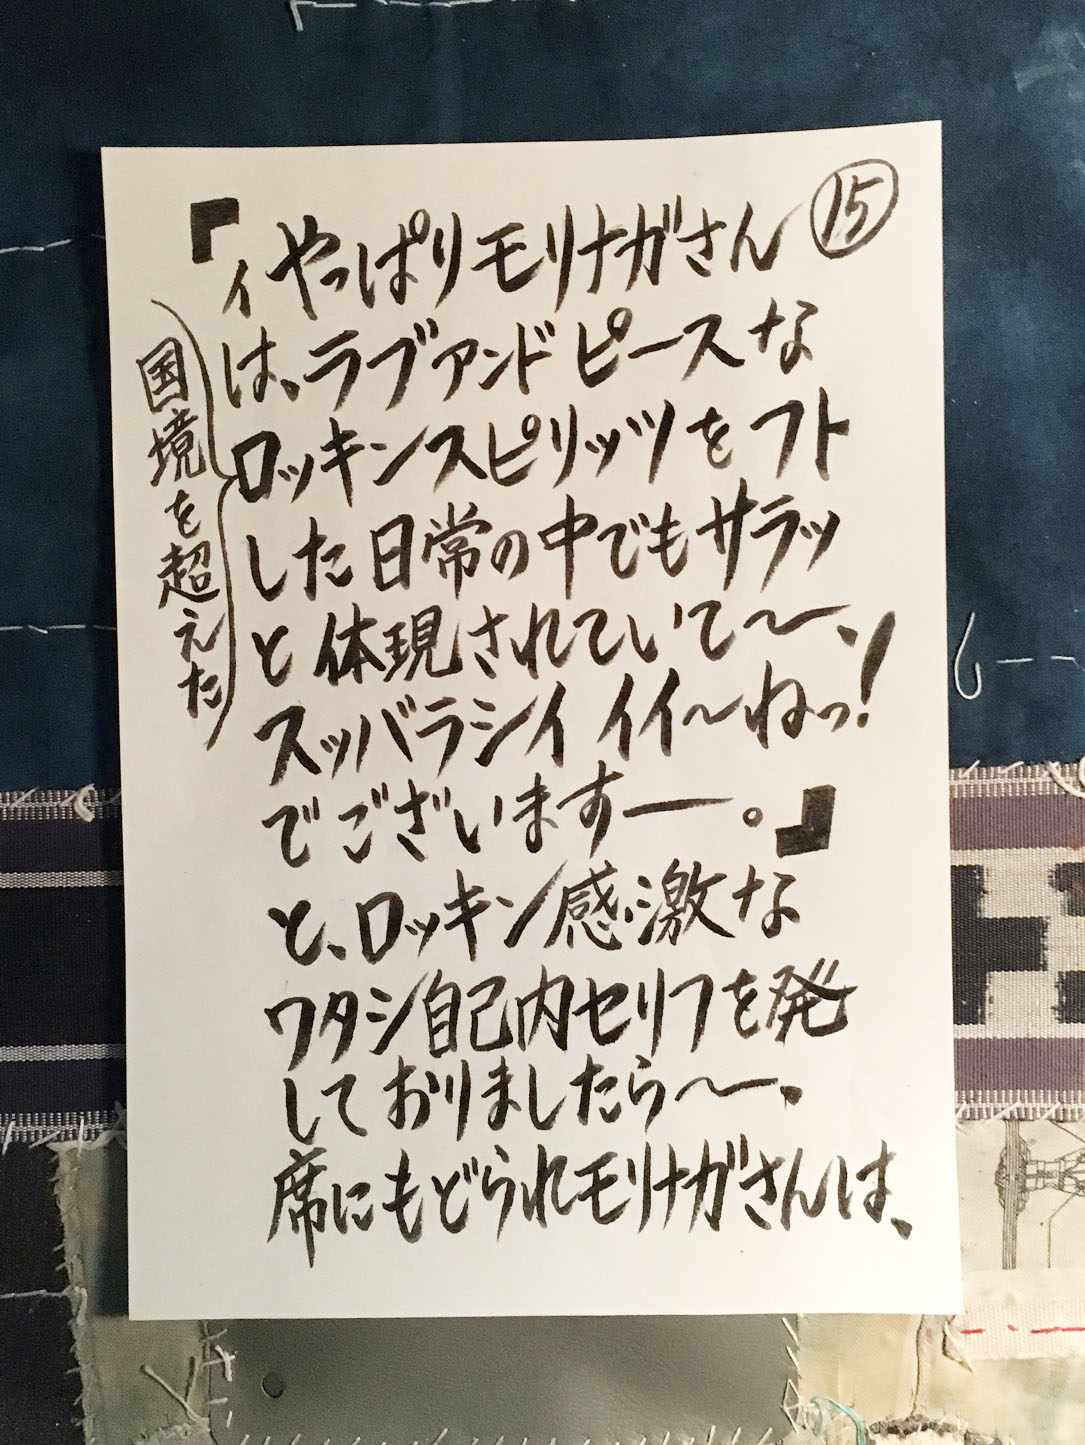 ⑮
『ィやっぱりモリナガさん
は、ラブァンドピースな
国境を超えた
ロッキンスピリッツをフト
した日常の中でもサラッ
と体現されていて〜、
スッバラシイイイ〜ねっ!
でございますー。』
と、ロッキン感激な
ワタシ自己内セリフを発
しておりましたら〜、
席にもどられモリナガさんは、